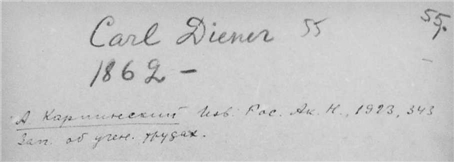 Carl Diener 55
55.
1862 –
А. Карпинский Изв. Рос. Ак. Н., 1923, 343
Зап. об учен. трудах.